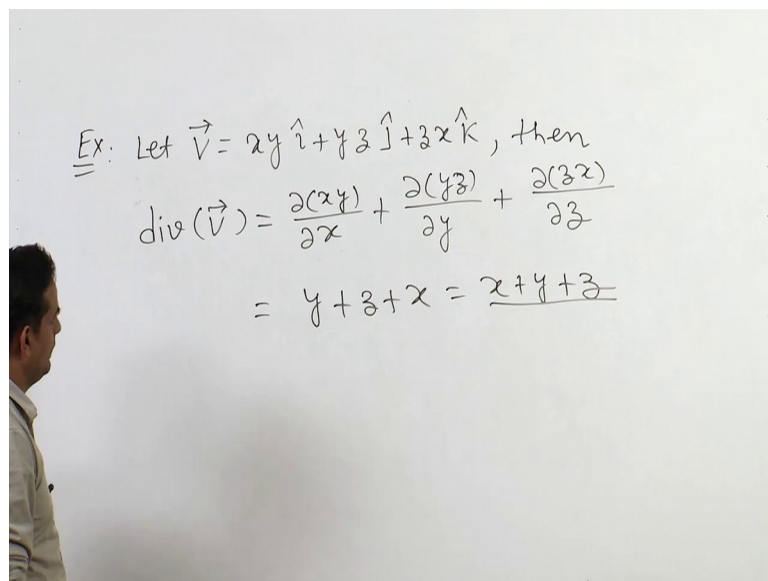 Ex: Let V⃗ = xy î + yz ĵ + zx k̂, then
div(V⃗) = ∂(xy)/∂x + ∂(yz)/∂y + ∂(zx)/∂z
= y + z + x = x + y + z